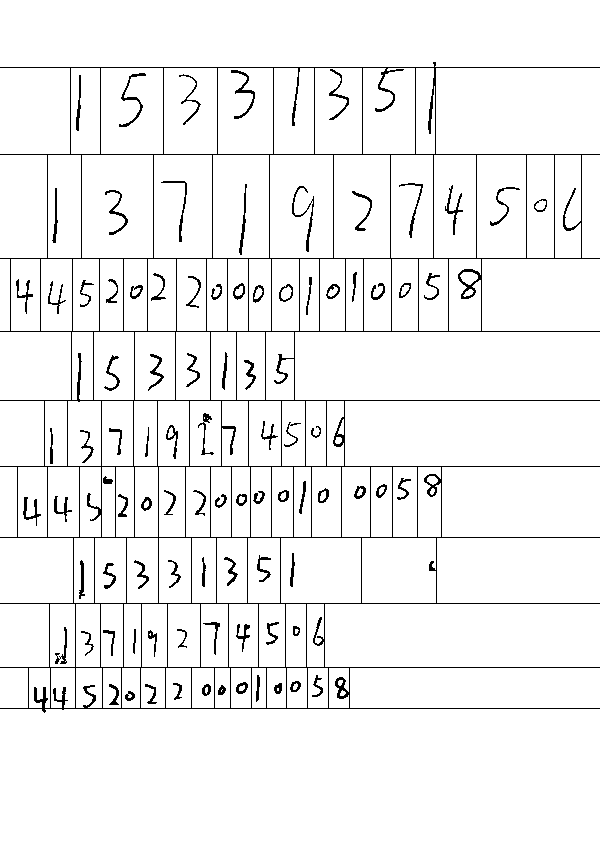 15331351
13719274506
445202200001010058
1533135
13719274506
4452022000010 0058
15331351
13719274506
445202200010058